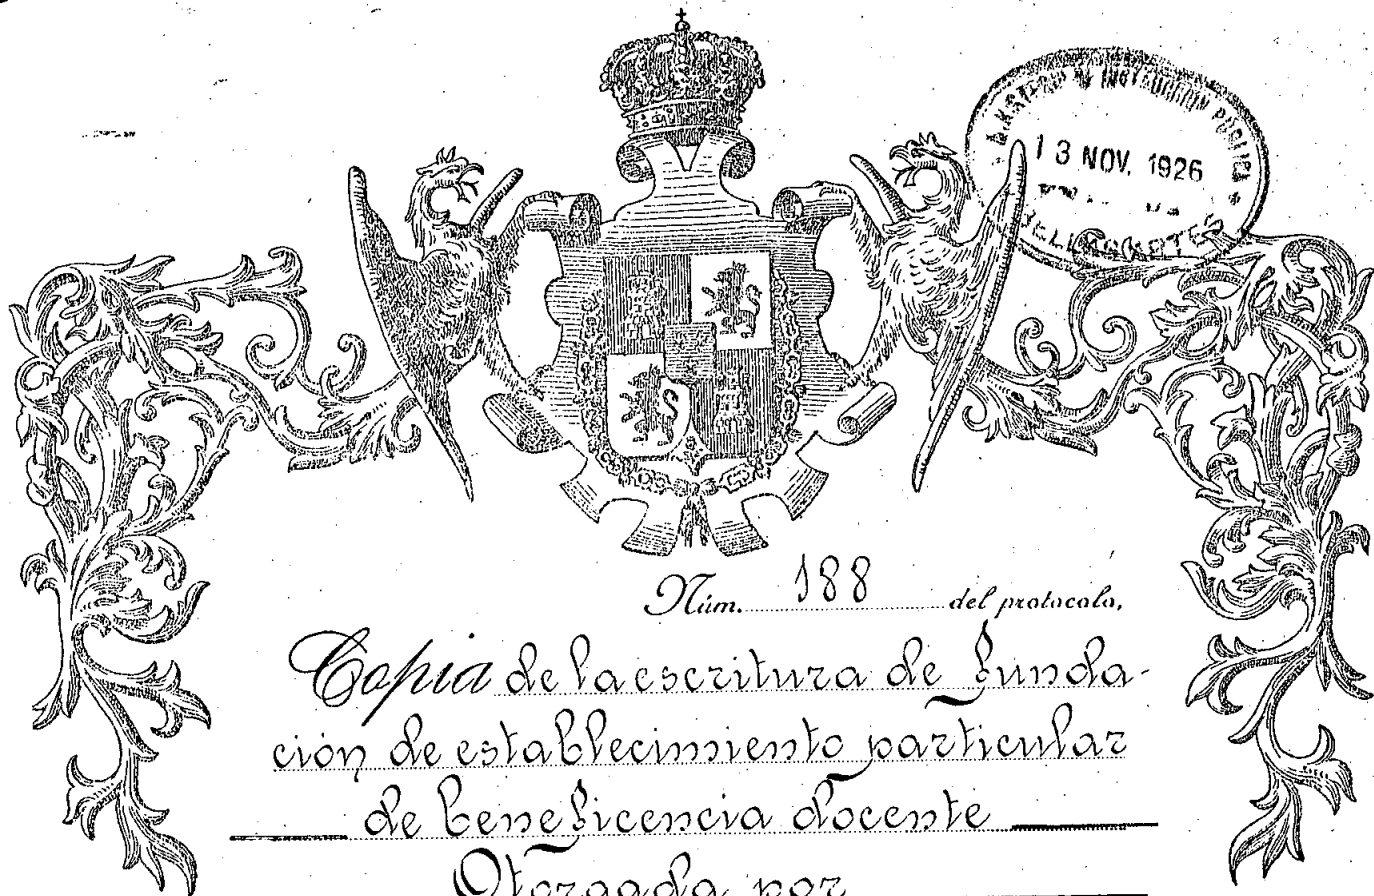 MINISTERIO DE INSTRUCCIÓN PÚBLICA
13 NOV. 1926
BELLAS ARTES
Núm. 188 del protocolo,
Copia de la escritura de funda-
ción de establecimiento particular
de beneficencia docente
Otorgada por